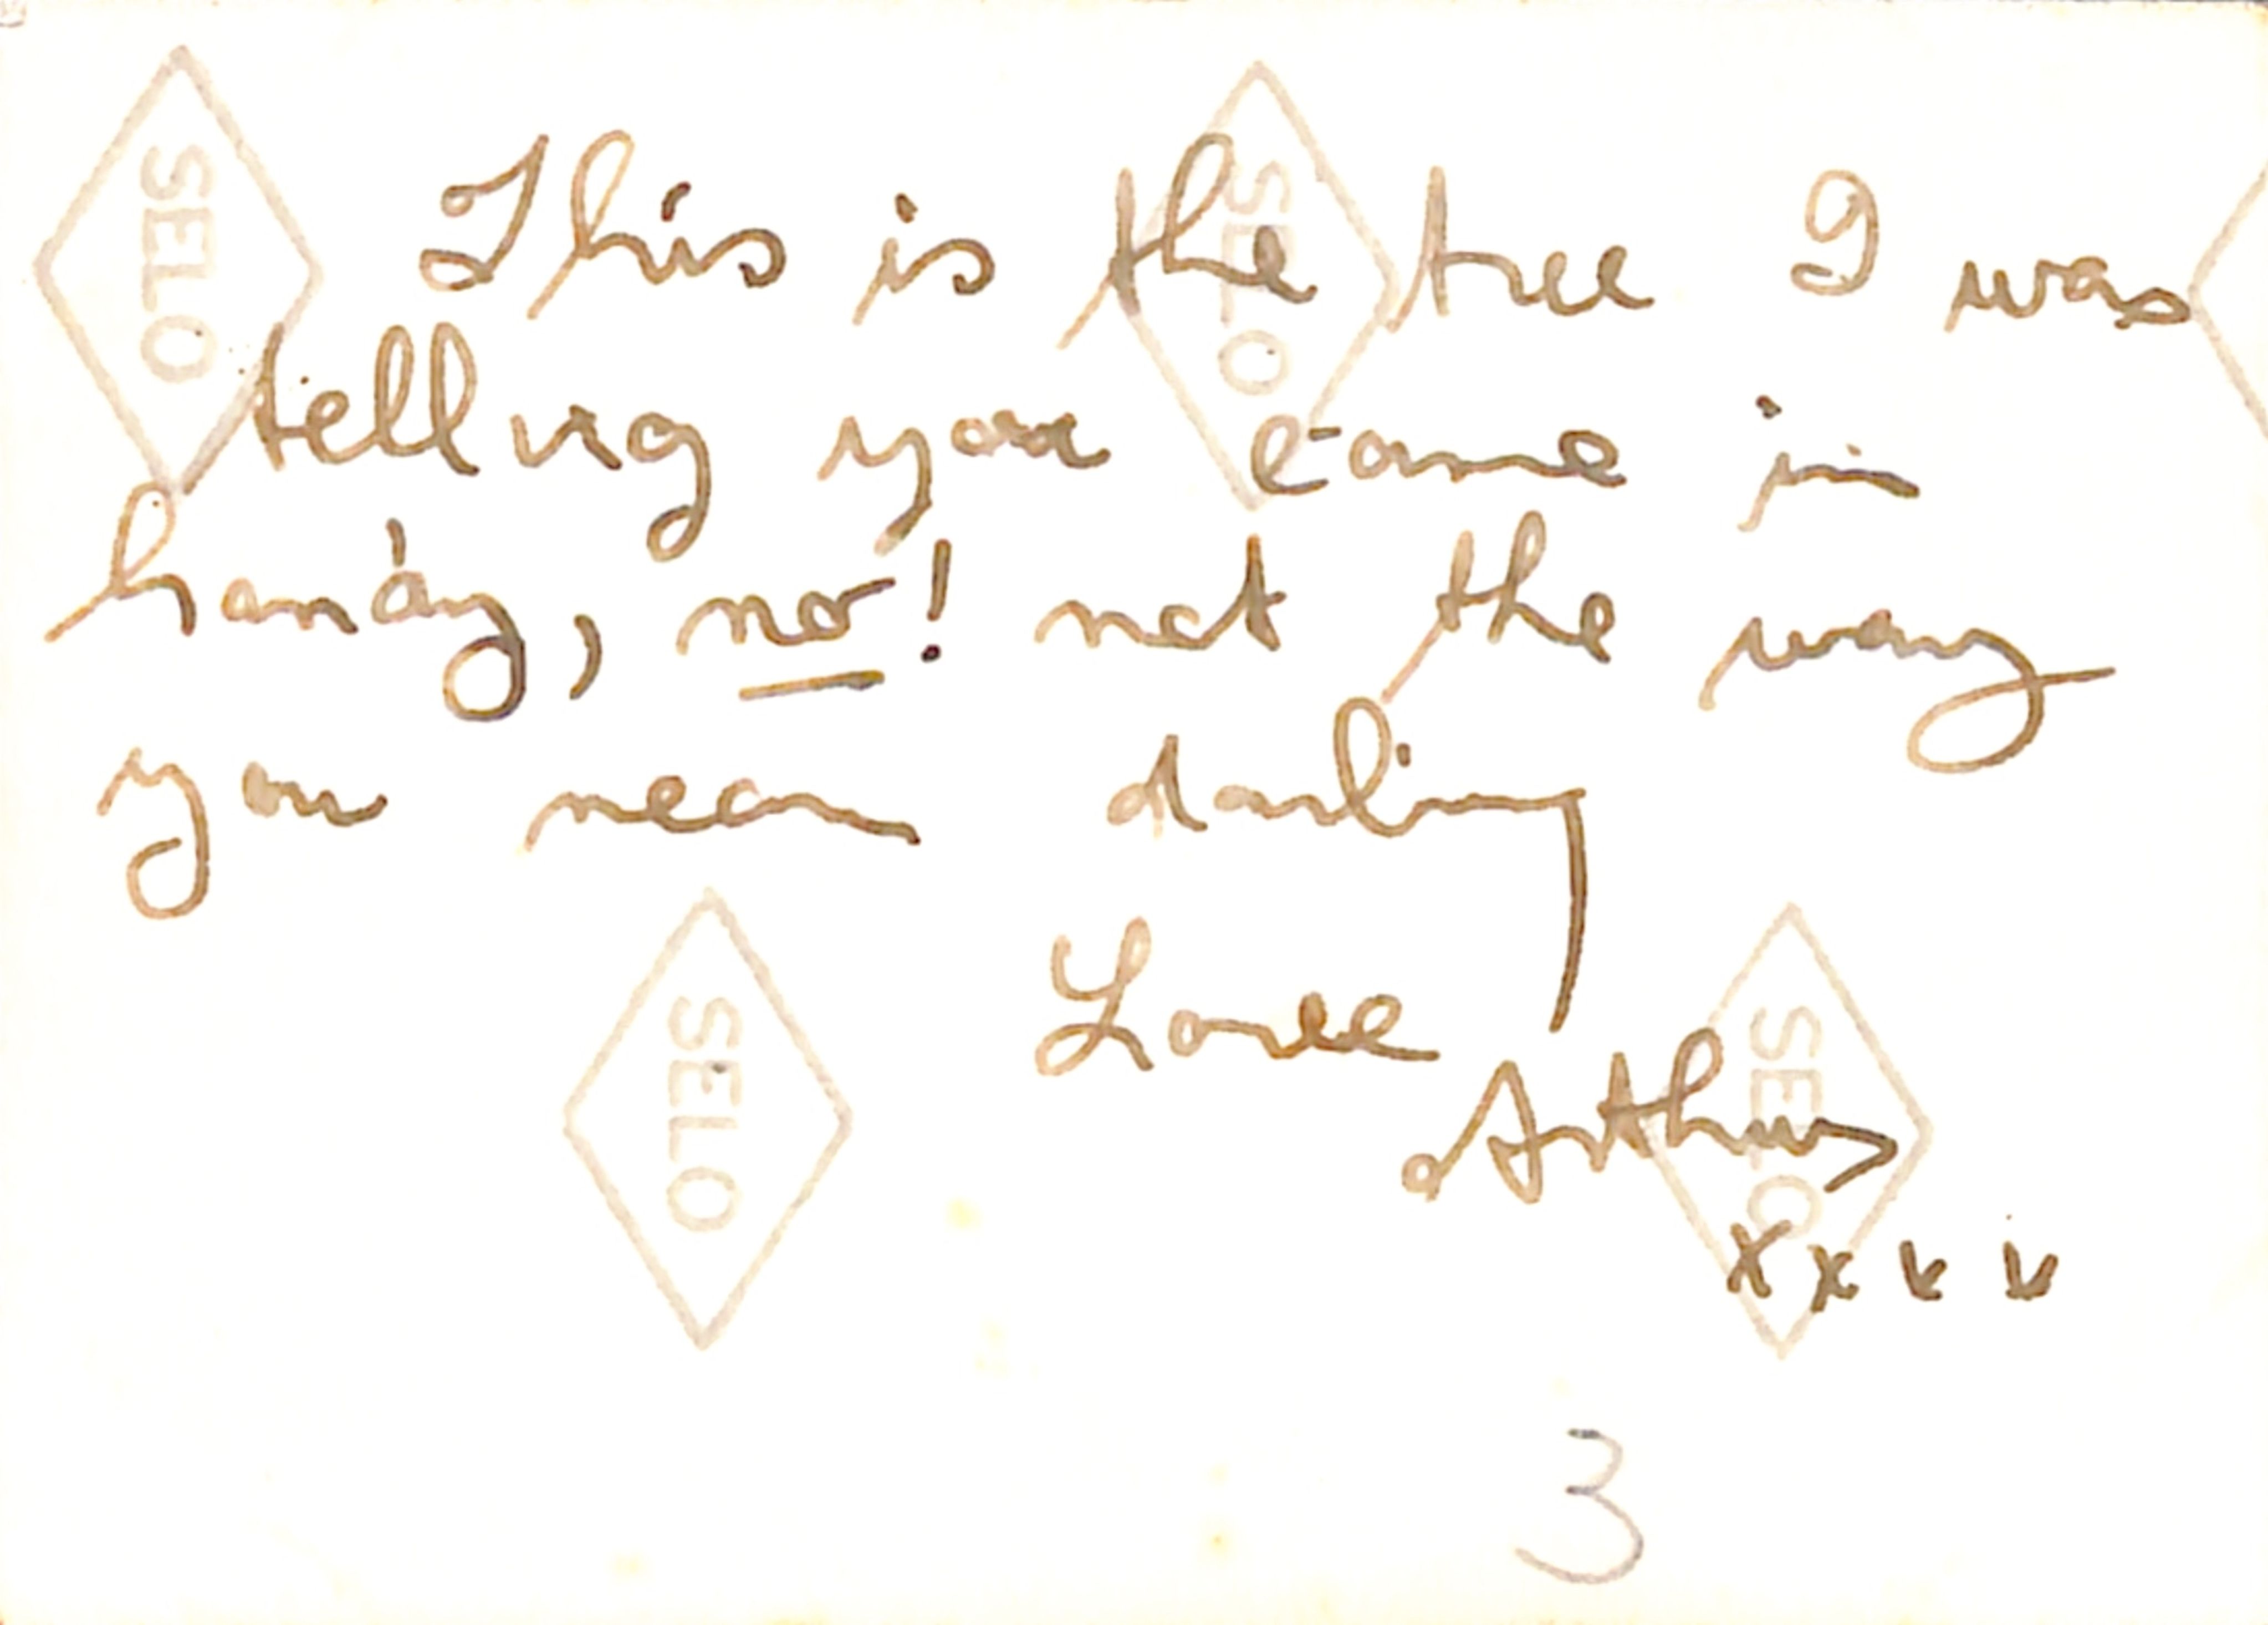 This is the tree I was
telling you came in
handy, no! not the way
you mean darling
Love
Arthur
xxxx
3
SELO
SELO
SELO
SELO